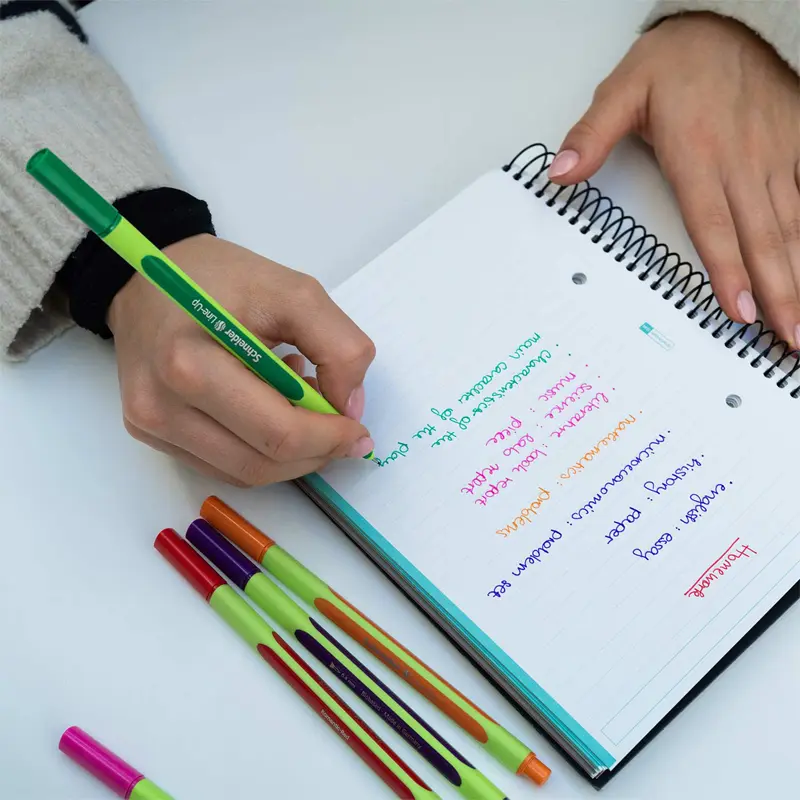 Homework
· english: essay
· history: paper
· microeconomics: problem set
· mathematics: problems
· literature: book report
· science: lab report
· music: piece
· characteristics of the
main caracters of the play
Schneider Line-Up